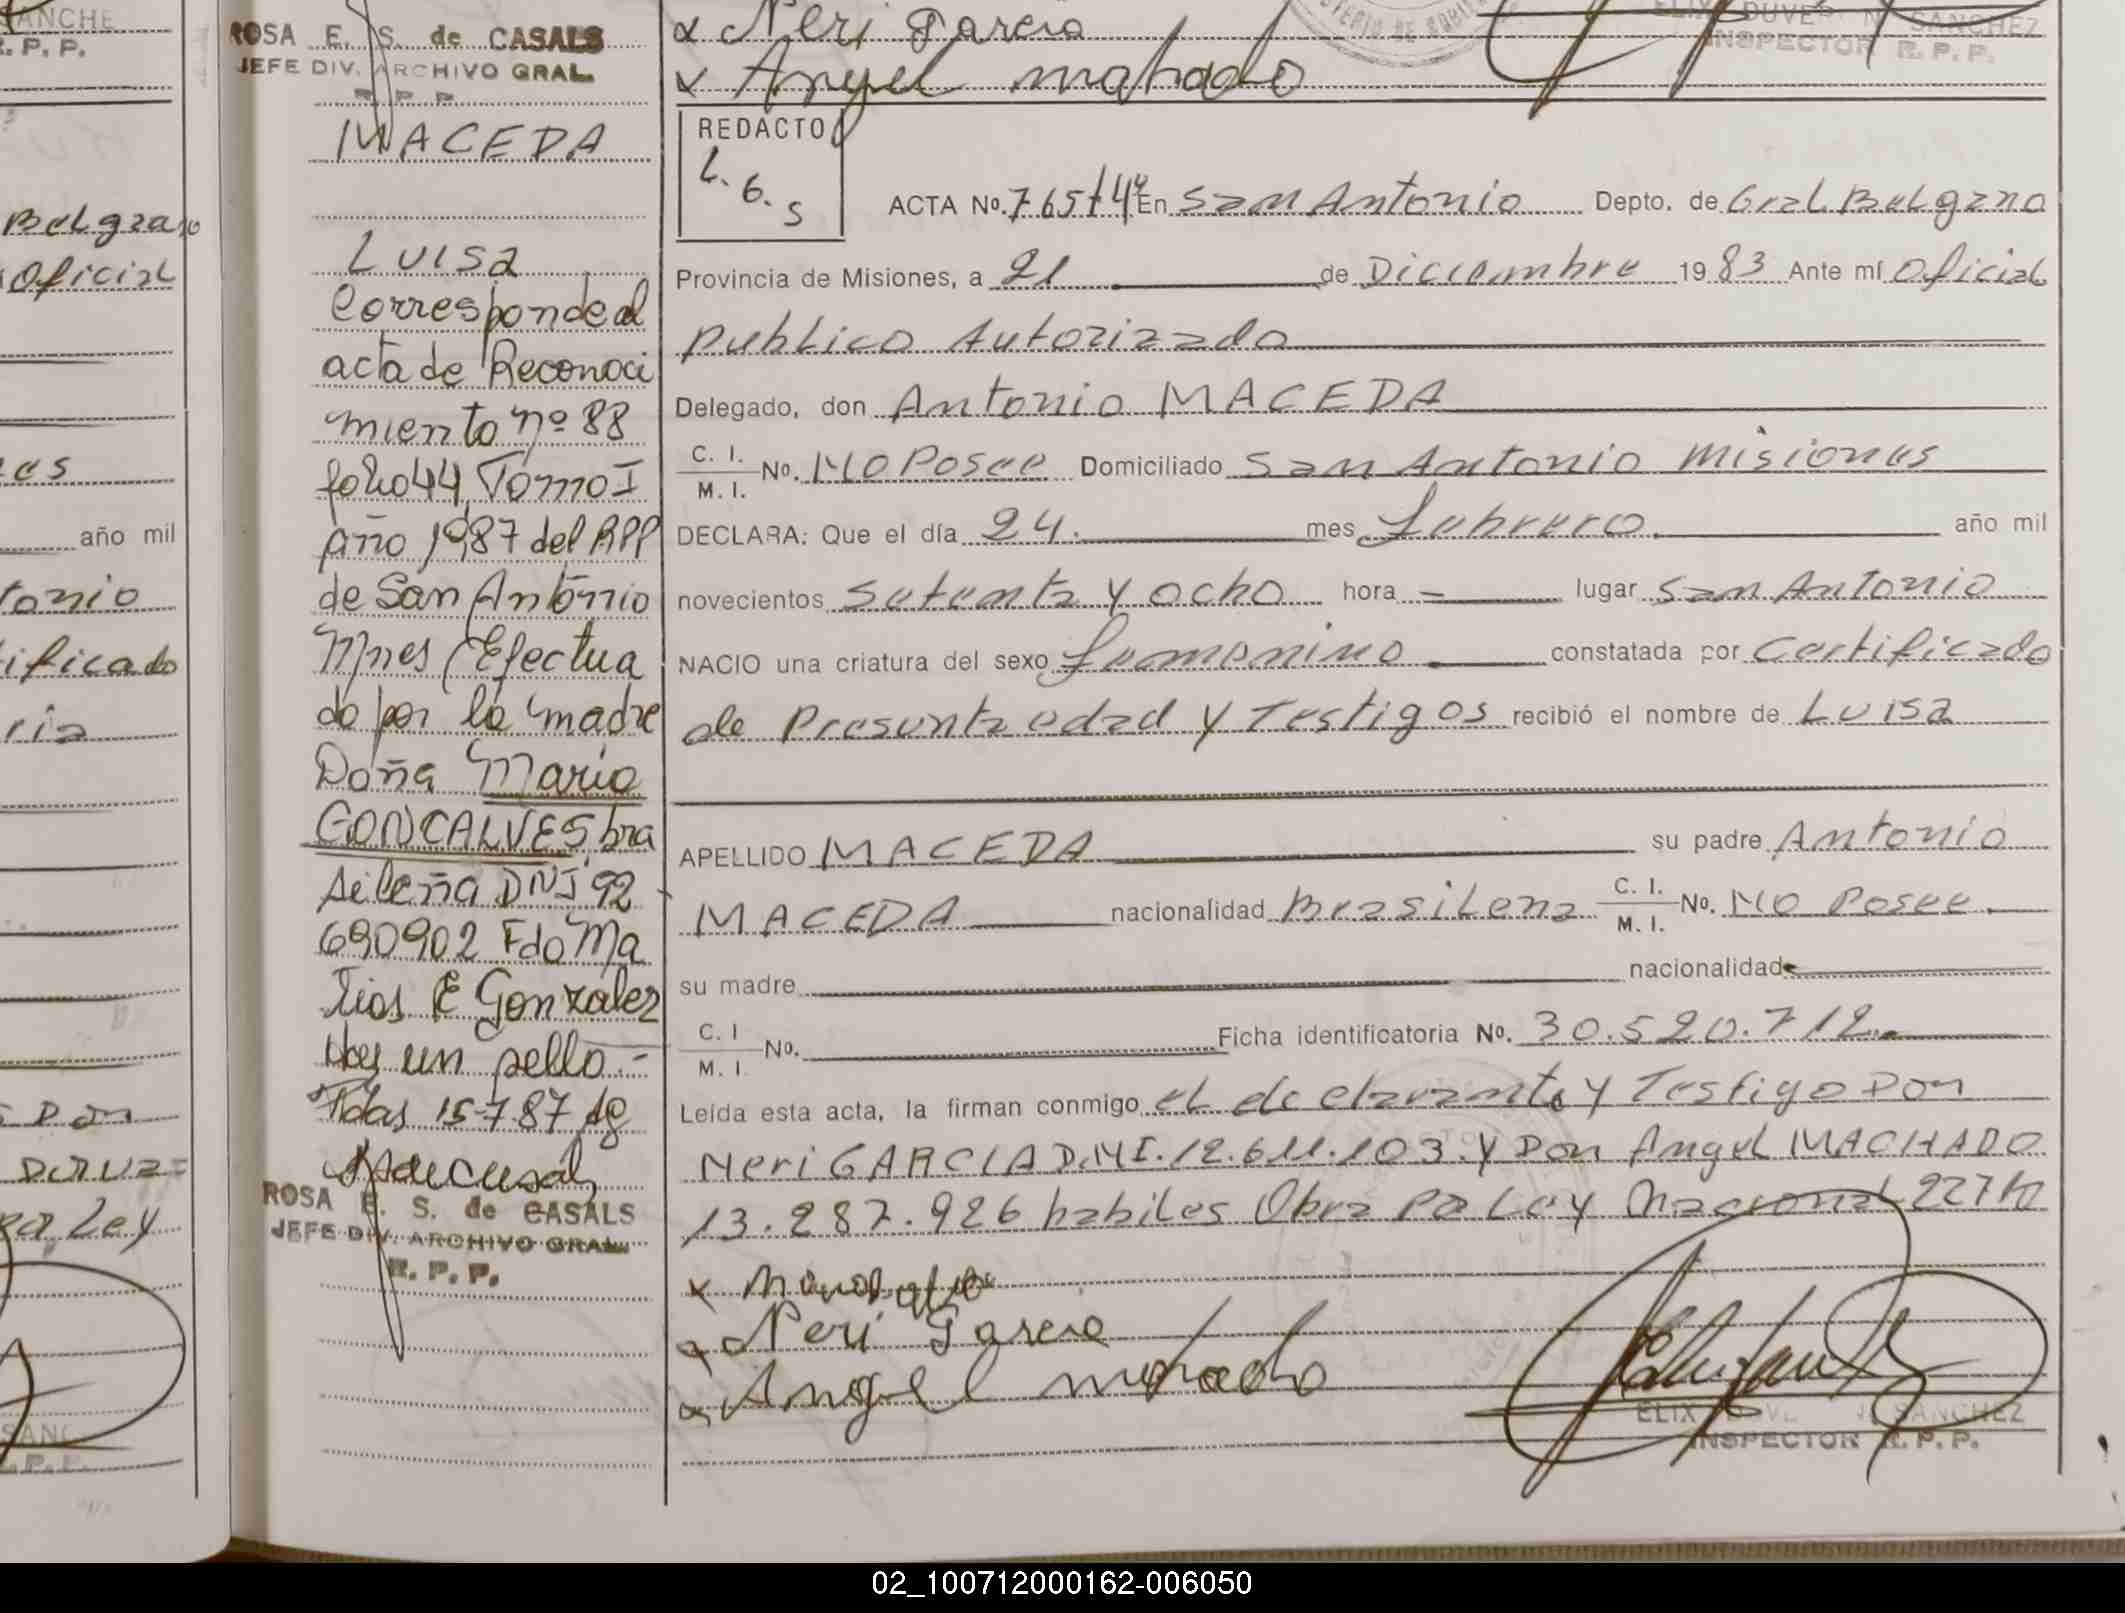 ANCHE
R. P. P.
Belgrano
Oficial
año mil
tonio
ificado
ria
Don
ra Ley
SANC
R. P. P.
ROSA E. S. de CASALS
JEFE DIV. ARCHIVO GRAL.
R. P. P.
MACEDA
LUISA
Corresponde al
acta de Reconoci
miento nº 88
folio 44 Tomo I
año 1987 del RPP
de San Antonio
Mnes (Efectua
do por la madre
Doña Maria
GONCALVES, bra
sileña DNI 92
690902 Fdo Ma
tias E Gonzalez
Hay un sello.-
Pdas 15-7-87
ROSA E. S. de CASALS
JEFE DIV. ARCHIVO GRAL.
R. P. P.
x Neri Garcia
x Angel machado
INSPECTOR R. P. P.
REDACTO
L. 6. S
ACTA No. 765 En San Antonio Depto. de Gral Belgrano
Provincia de Misiones, a 21 de Diciembre 1983 Ante mí Oficial
publico Autorizado
Delegado, don Antonio MACEDA
C. I.
M. I. No. No Posee Domiciliado San Antonio Misiones
DECLARA: Que el día 24. mes Febrero. año mil
novecientos setenta y ocho hora - lugar San Antonio
NACIO una criatura del sexo femenino constatada por Certificado
de Presunta edad y Testigos recibió el nombre de LUISA
APELLIDO MACEDA su padre Antonio
MACEDA nacionalidad Brasilena C. I.
M. I. No. No Posee.
su madre nacionalidad
C. I
M. I. No. Ficha identificatoria No. 30.520.712.-
Leída esta acta, la firman conmigo el declarante y Testigo Don
Neri GARCIA D.N.I. 12.611.103. y Don Angel MACHADO
13.287.926 habiles Obra Pa Ley Nacional
x Neri Garcia
x Angel machado
SANCHEZ
INSPECTOR R. P. P.
02_100712000162-006050